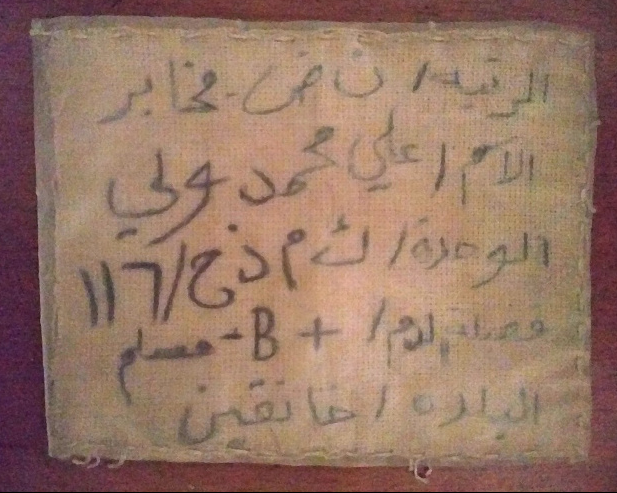 الرتبه / ن ض - مخابر
الاسم / علي محمد ولي
الوحدة / ك م ذج / ١١٦
فصلة لدم / + B - مسلم
البلده / خانقين